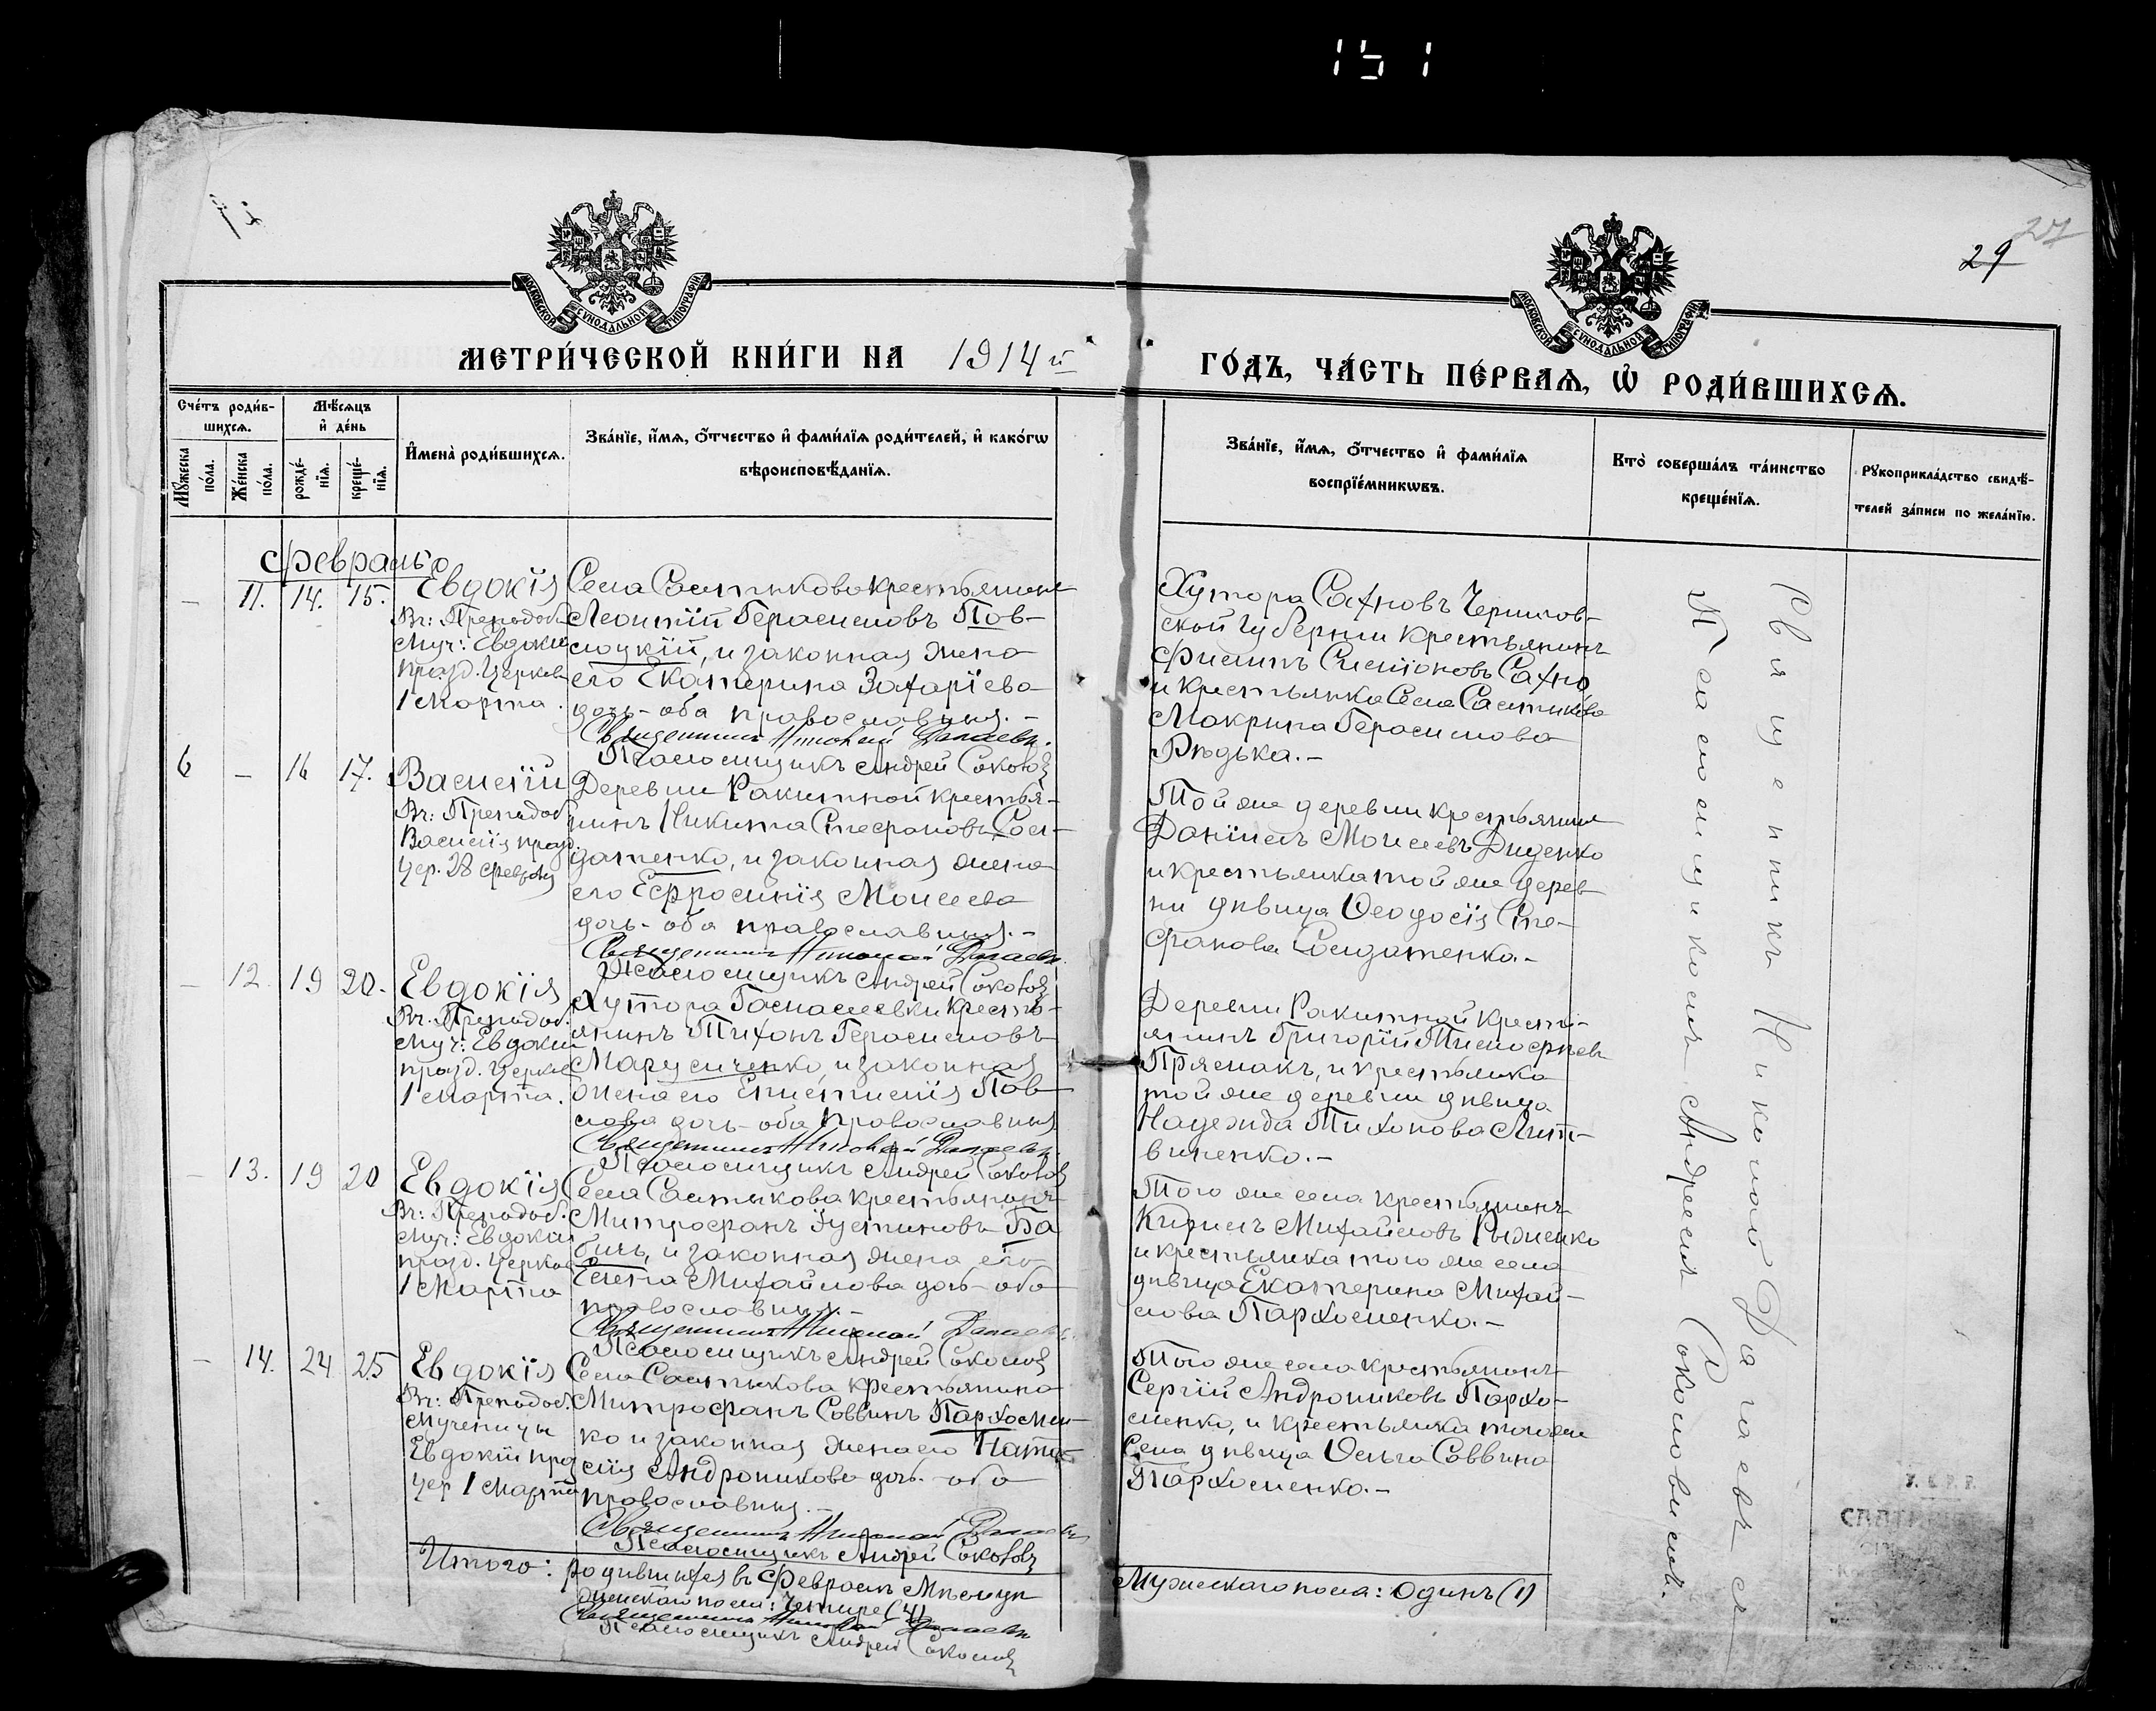 151
29
27
МОСКОВСКОЙ СѴНОДАЛЬНОЙ ТИПОГРАФІИ
МОСКОВСКОЙ СѴНОДАЛЬНОЙ ТИПОГРАФІИ
МЕТРИ́ЧЕСКОЙ КНИ́ГИ НА 1914 й
ГО́ДЪ, ЧА́СТЬ ПЕ́РВАѦ, Ѡ҆ РОДИ́ВШИХСѦ.
Сче́тъ роди́в-
шихсѧ.
Мꙋ́жеска по́ла.
Же́нска по́ла.
Мѣ́сѧцъ
и҆ де́нь
рожде́-
нїѧ.
креще́-
нїѧ.
И҆мена̀ роди́вшихсѧ.
Зва́нїе, и҆́мѧ, ѻ҆́тчество и҆ фами́лїѧ роди́телей, и҆ како́гѡ
вѣроисповѣ́данїѧ.
Зва́нїе, и҆́мѧ, ѻ҆́тчество и҆ фами́лїѧ
воспрїе́мникѡвъ.
Кто̀ соверша́лъ та́инство
креще́нїѧ.
Рꙋкоприкла́дство свидѣ́-
телей за́писи по жела́нїю.
Февраль
- 11. 14. 15.
Евдокія
Вч: Преподоб.
Муч: Евдокіи
празд. Церковь
1 Марта.
Села Салтыкова крестьянинъ
Леонтій Герасимовъ Пов-
слоцкій, и законная жена
его Екатерина Захаріева
дочь - оба православныя. -
Священникъ Николай
Псаломщикъ Андрей Соколов
Хутора Сахновъ Чернигов-
ской губерніи крестьянинъ
Филипъ Симіоновъ Сахно
и крестьянка Села Салтыкова
Макрина Герасимова
Рѣдька. -
6 - 16 17.
Василій
Вч: Преподоб
Василія празд.
цер. 28 Февраля
Деревни Ракитной крестья-
нинъ Никита Стефановъ Сол-
датенко, и законная жена
его Ефросинія Моисеева
дочь - оба православныя. -
Священникъ Николай
Псаломщикъ Андрей Соколов
Той же деревни крестьянинъ
Даніилъ Моисеевъ Диденко
и крестьянка той же дерев
ни дѣвица Ѳеодосія Сте-
фанова Солдатенко -
- 12. 19 20.
Евдокія
Вч. Преподоб.
Муч: Евдокіи
празд. Церков
1 Марта.
Хутора крестья-
янинъ Тихонъ Герасимовъ
Марусиченко, и законная
жена его Епистимія Пав
лова дочь - оба православныя
Священникъ Николай
Псаломщикъ Андрей Соколов
Деревни Ракитной крестья-
янинъ Григорій Тимофеевъ
Прясмакъ, и крестьянка
той же деревни дѣвица
Надежда Тихонова Лит-
виненко. -
- 13. 19 20
Евдокія
Вч: Преподоб.
Муч: Евдокіи
празд. Церков
1 Марта
Села Салтыкова крестьянинъ
Митрофанъ Іустиновъ Ба
бичъ, и законная жена его
Елена Михайлова дочь - оба
православныя. -
Священникъ Николай
Псаломщикъ Андрей Соколов
Того же села крестьянинъ
Кирилъ Михайловъ Рыженко
и крестьянка того же села
дѣвица Екатерина Михай-
лова Пархоменко. -
- 14. 24 25
Евдокія
Вч: Преподоб.
Мученицы
Евдокіи праз
цер 1 Марта
Села Салтыкова крестьянинъ
Митрофанъ Саввинъ Пархомен-
ко и законная жена его Ната-
лія Андроникова дочь - оба
православныя. -
Священникъ Николай
Псаломщикъ Андрей Соколовъ
Того же села крестьянинъ
Сергій Андрониковъ Пархо-
менко, и крестьянка того же
Села дѣвица Ольга Саввина
Пархоменко. -
Итого: родившихся въ Февралѣ Мѣсяцѣ
женскаго пола: Четыре (4)
Мужескаго пола: Одинъ (1)
Священникъ Николай
Псаломщикъ Андрей Соколов
Священникъ Николай
Псаломщикомъ Андреемъ Соколовымъ.